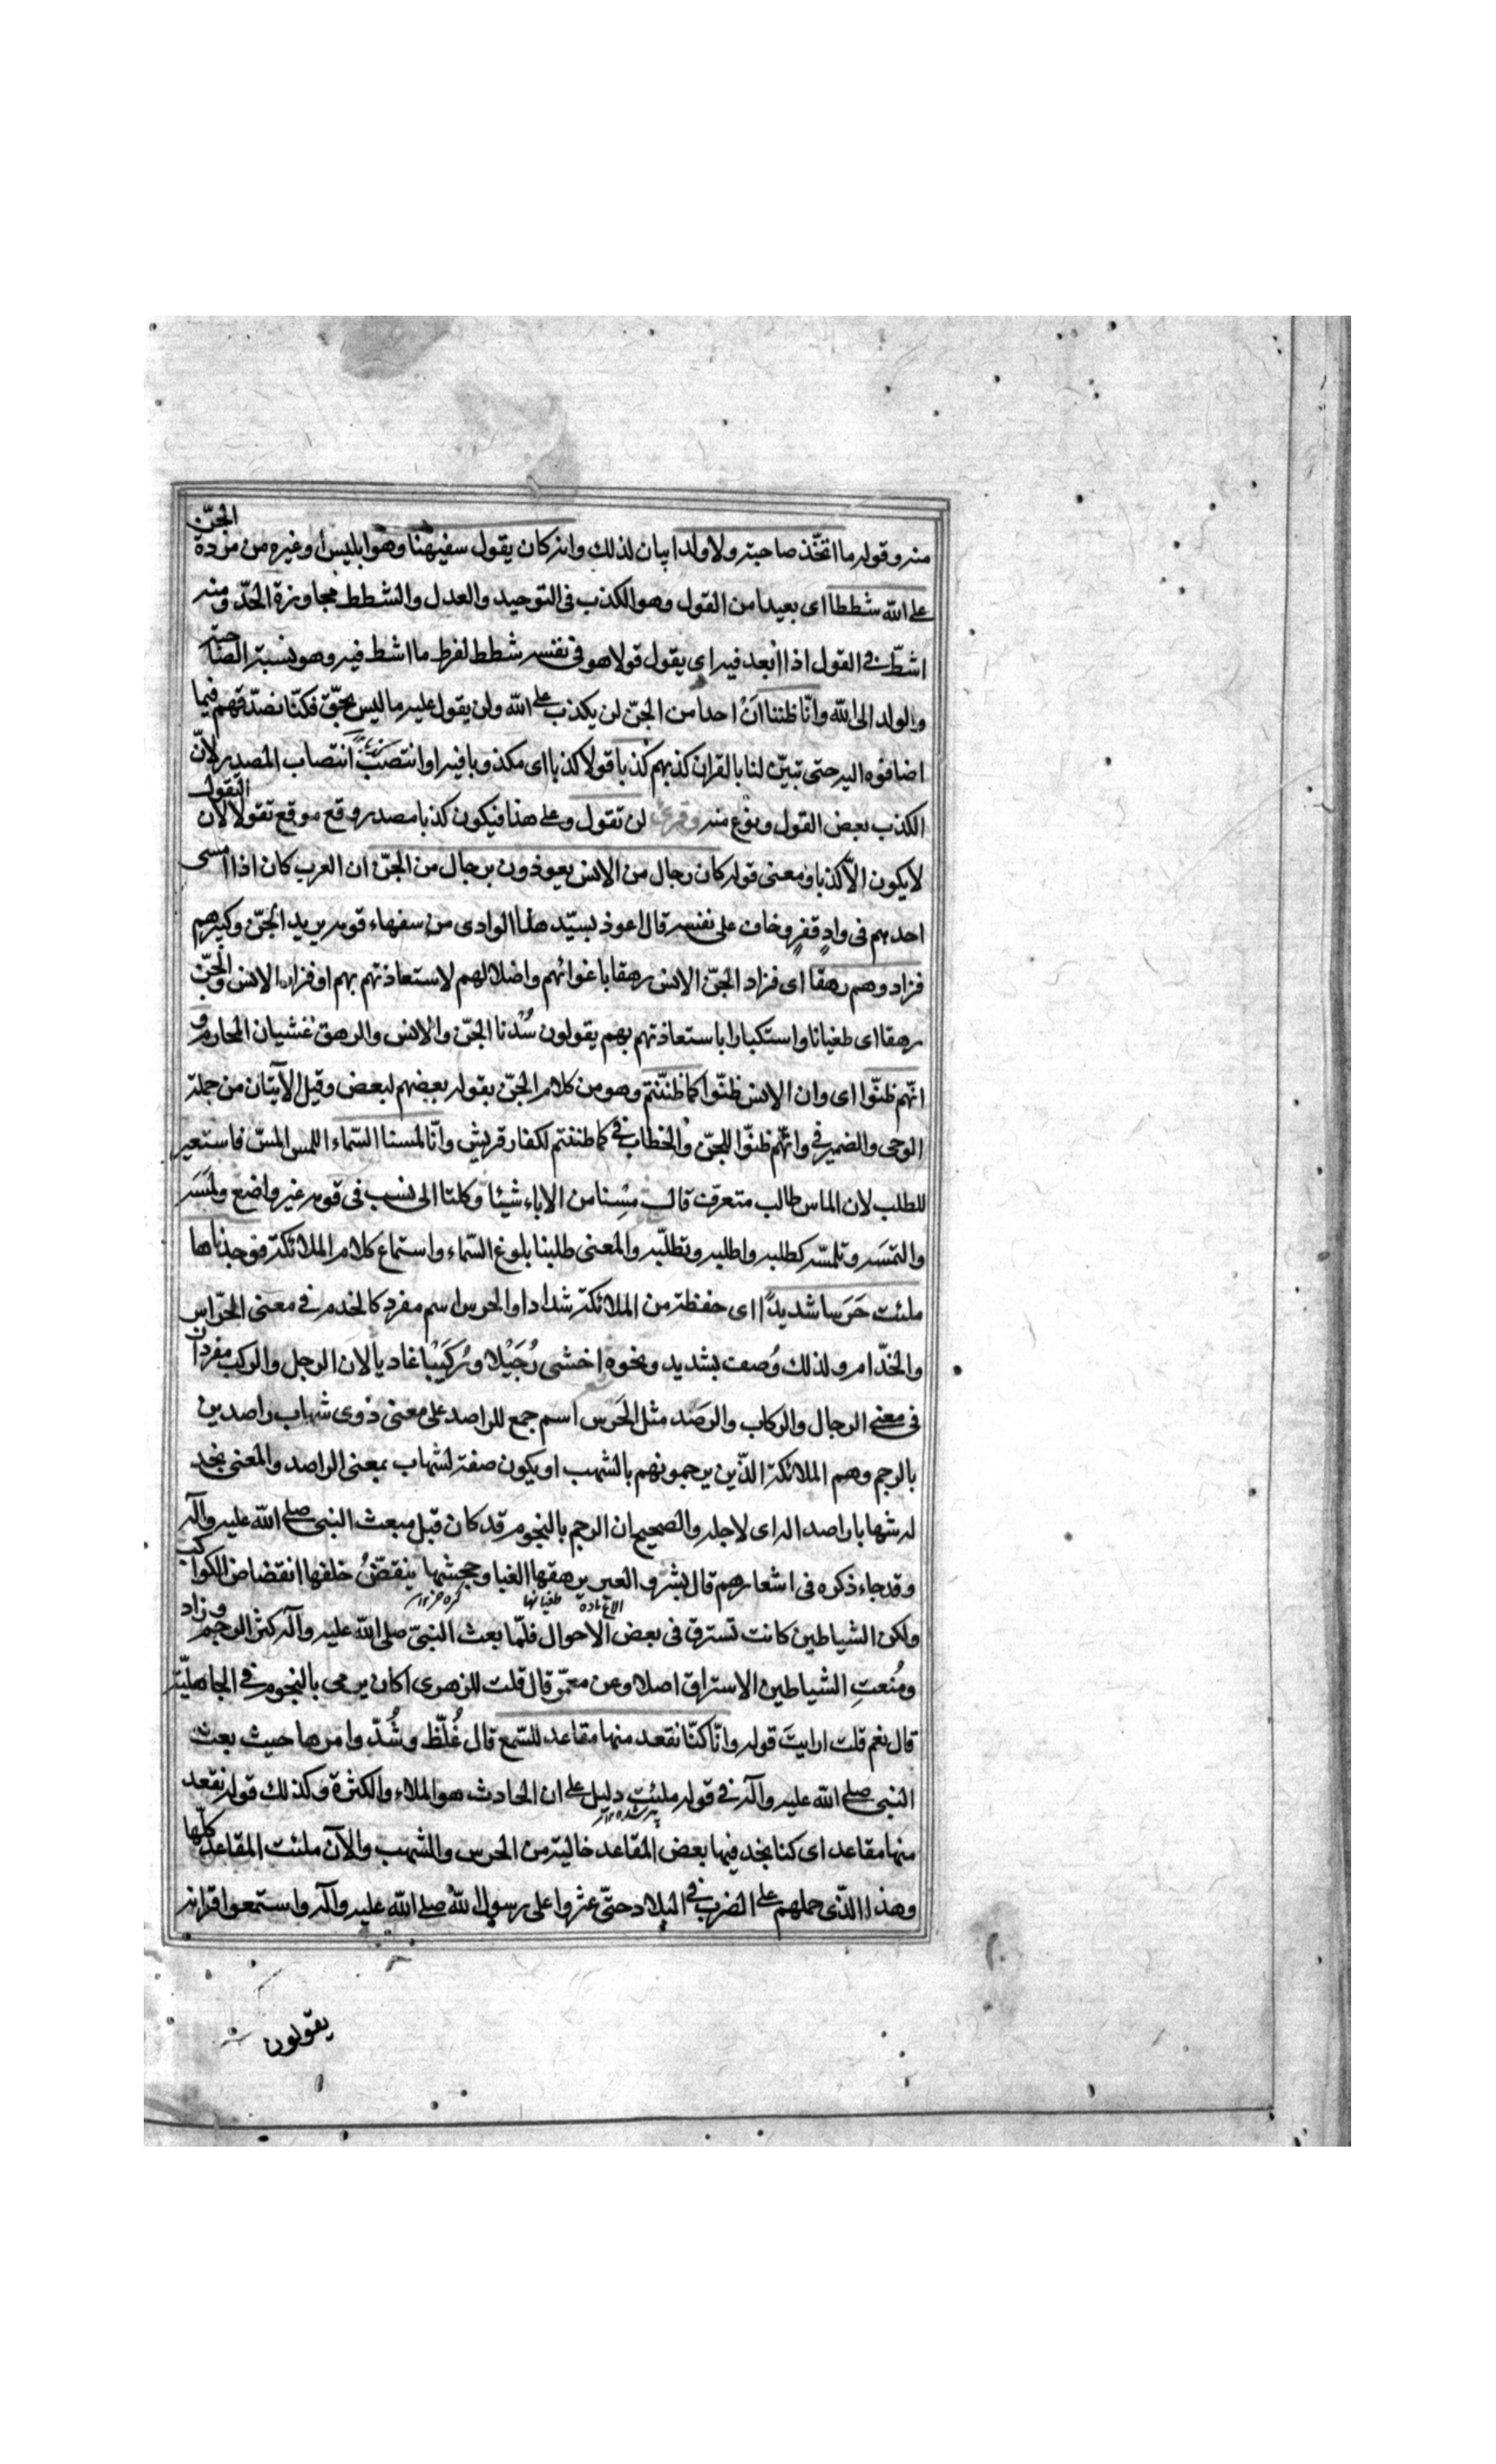 منه وقوله ما اتّخذ صاحبة ولا ولدا بيان لذلك وانه كان يقول سفيهنا وهو ابليس او غيره من مردة الجنّ
على الله شططا اى بعيدا من القول وهو الكذب فى التوحيد والعدل والشطط مجاوزة الحدّ ومنه
اشطّ فى القول اذا ابعد فيه اى يقول قولا هو فى نفسه شطط لفرط ما اشط فيه وهو نسبة الصاحبة
والولد الى الله وانّا ظننا ان احدا من الجنّ لن يكذب على الله ولن يقول عليه ما ليس بحقّ فكنّا نصدّقهم فيما
اضافوه اليه حتى تبيّن لنا بالقران كذبهم كذبا قولا كذبا اى مكذوبا فيه او انتصب انتصاب المصدر لانّ
الكذب بعض القول ونوع منه وقرئ لن تقول وعلى هذا فيكون كذبا مصدر وقع موقع تقولا لان التقول
لا يكون الّا كذبا ومعنى قوله كان رجال من الانس يعوذون برجال من الجنّ ان العرب كان اذا امسى
احدهم فى وادٍ قفرٍ وخاف على نفسه قال اعوذ بسيّد هذا الوادى من سفهاء قومه يريد الجنّ وكبيرهم
فزادوهم رهقا اى فزاد الجنّ الانس رهقا باغوائهم واضلالهم لاستعاذتهم بهم او فزاد الانس الجنّ
رهقا اى طغيانا واستكبارا باستعاذتهم بهم يقولون سُدنا الجنّ والانس والرهق غشيان المحارم و
انّهم ظنّوا اى وان الانس ظنّوا كما ظننتم وهو من كلام الجنّ يقوله بعضهم لبعض وقيل الآيتان من جملة
الوحى والضمير فى وانّهم ظنّوا للجنّ والخطاب فى كما ظننتم لكفار قريش وانّا لمسنا السّماء اللمس المسّ فاستعير
للطلب لان الماس طالب متعرف قال مسنا من الاباء شيئا وكلنا الى نسب فى قومه غير واضع ولمسَه
والتمسَه وتلمّسه كطلبه واطلبه وتطلّبه والمعنى طلبنا بلوغ السّماء واستماع كلام الملائكة فوجدناها
ملئت حَرَسا شديدًا اى حفظة من الملائكة شدادا والحرس اسم مفرد كالخدم فى معنى الحرّاس
والخدّام ولذلك وُصف بشديد ونحوه اخشى رُجَيْلا ورُكَيْبا غاديا لان الرجل والركب مفردان
فى معنى الرجال والركاب والرصَد مثل الحَرس اسم جمع للراصد على معنى ذوى شهاب راصدين
بالرجم وهم الملائكة الّذين يرجمونهم بالشهب او يكون صفة لشهاب بمعنى الراصد والمعنى يجد
له شهابا راصدا له اى لاجله والصحيح ان الرجم بالنجوم قد كان قبل مبعث النبى صلى الله عليه وآله
وقد جاء ذكره فى اشعارهم قال بشر والعير يرهقها الغبار وجحشها ينقضّ خلفها انقضاض الكواكب
ولكن الشياطين كانت تسترق فى بعض الاحوال فلمّا بعث النبىّ صلى الله عليه وآله كثر الرجم وزاد
ومُنعتِ الشياطين الاستراق اصلا وعن معمّر قال قلت للزهرى اكان يرمى بالنجوم فى الجاهليّة
قال نعم قلت ارايتَ قوله وانّا كنّا نقعد منها مقاعد للسّمع قال غُلّظ وشُدّد امرها حيث بعث
النبى صلى الله عليه وآله فى قوله ملئت دليل على ان الحادث هو الملاء والكثرة وكذلك قوله نقعد
منها مقاعد اى كنا نجد فيها بعض المقاعد خالية من الحرس والشهب والآن ملئت المقاعد كلّها
وهذا الّذى حملهم على الضرب فى البلاد حتّى عثروا على رسول الله صلى الله عليه وآله واستمعوا قرانه
يقولون